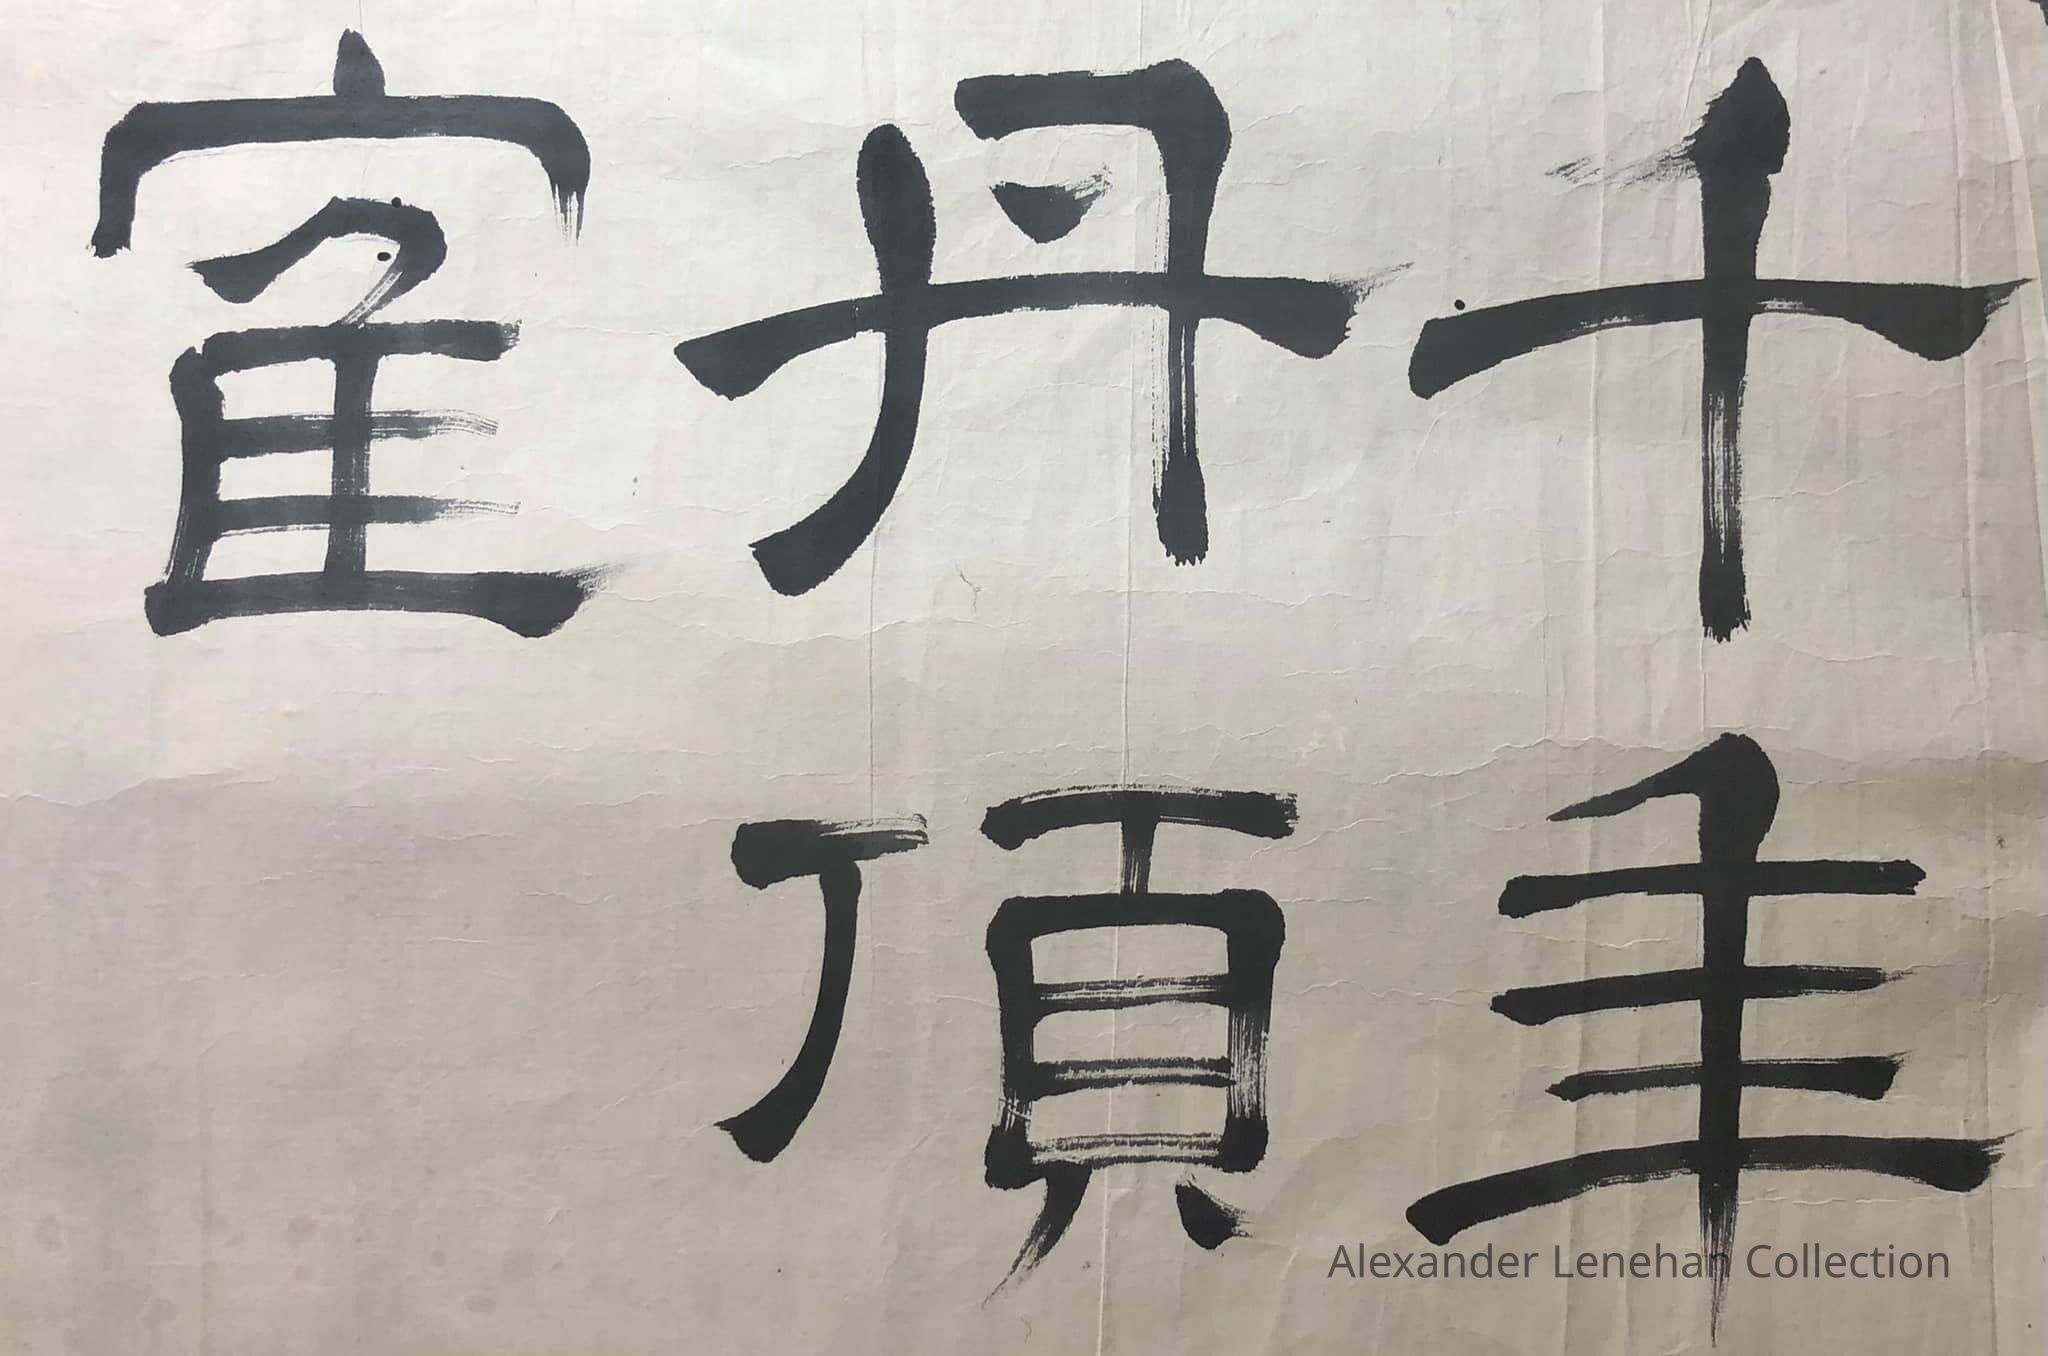 千年
丹頂
寉
Alexander Lenehan Collection